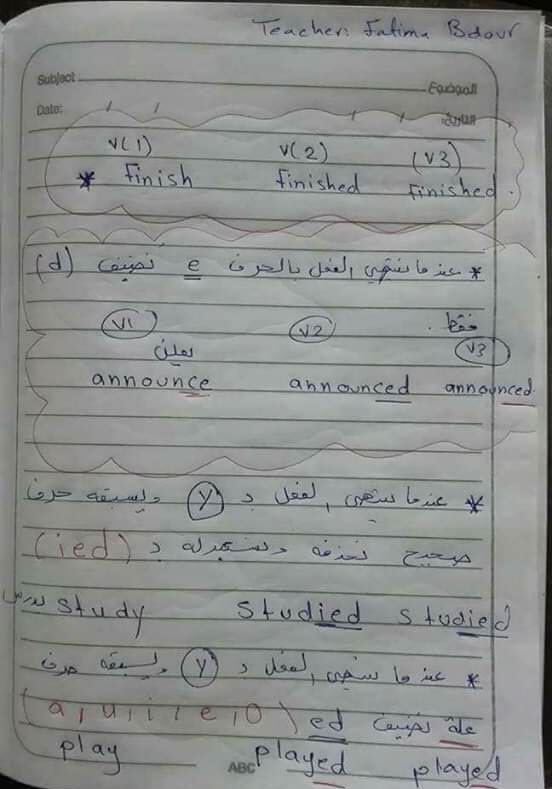 Teacher: Fatima Bdour
Subject الموضوع
Date: / / / / التاريخ:
V(1) V(2) (V3)
* finish finished finished.
* عندما ينتهي الفعل بالحرف e نضيف (d)
فقط.
V1 V2 V3
يعلن
announce announced announced.
* عندما ينتهي الفعل بـ y ويسبقه حرف
صحيح نحذفه ونستبدله بـ (ied)
يدرس study studied studied
* عندما ينتهي الفعل بـ y ويسبقه حرف
علة نضيف ed (a, u, i, e, o)
play played played
ABC